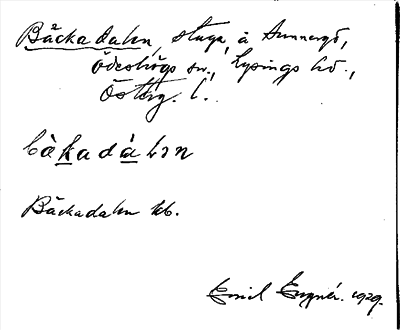 Bäckadalen, stuga, å Sunnergö,
Ödeshögs sn., Lysings hd.,
Österg. l.
bä̀kadàlən
Bäckadalen kb.
Emil Engnér. 1929.